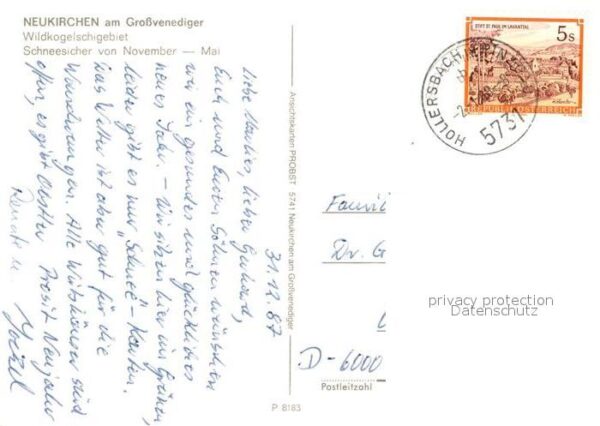 NEUKIRCHEN am Großvenediger
Wildkogelschigebiet
Schneesicher von November — Mai
31.12.87
Liebe Marlies, lieber Gerhard,
Euch und Euren Söhnen wünschen
wir ein gesundes und glückliches
neues Jahr. – Wir sitzen hier im Grünen,
leider gibt es nur "Schnee"-Karten.
Das Wetter ist aber gut für die
Wanderungen. Alle Wirtshäuser sind
offen, es gibt Prosit Neujahr
Renate u.
Ansichtskarten PROBST 5741 Neukirchen am Großvenediger
P 8183
STIFT ST. PAUL IM LAVANTTAL
5s
REPUBLIK ÖSTERREICH
HOLLERSBACH IM PINZGAU
5731
Famili
Dr. G
D-6000
Postleitzahl
privacy protection
Datenschutz